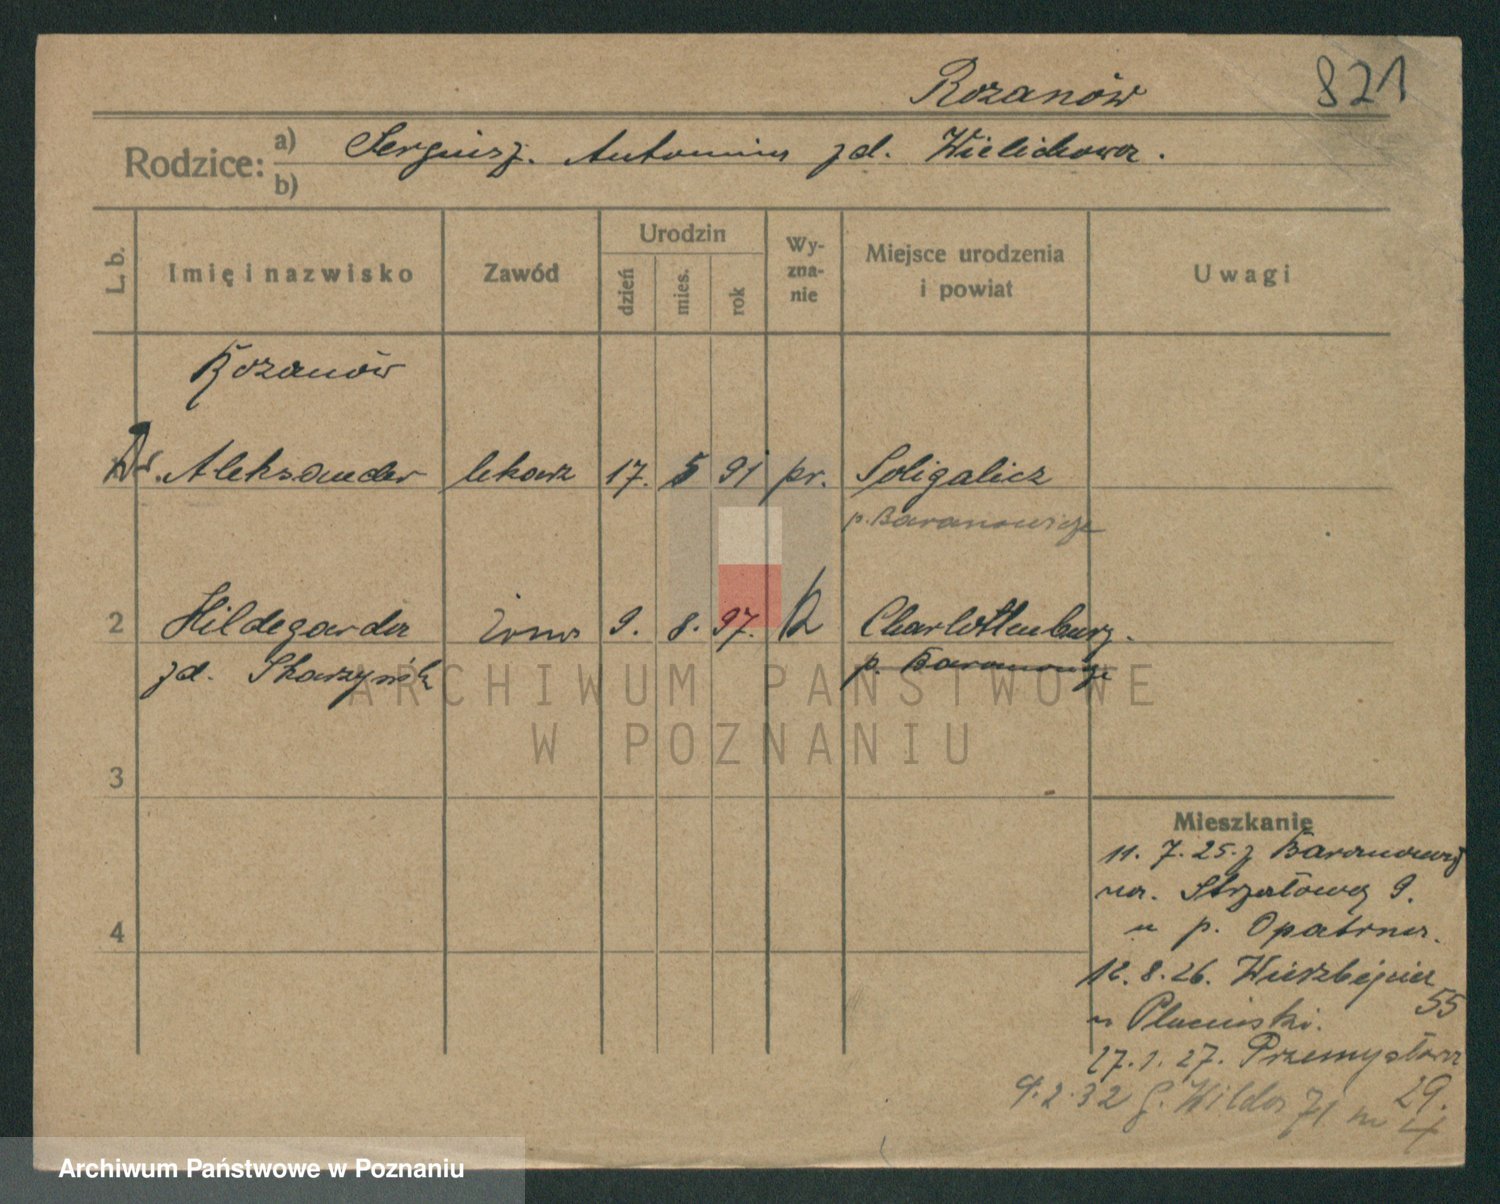 Rozanów 821
Rodzice: a) Sergiusz. Antonina zd. Wielichowa.
b)
L. b. Imię i nazwisko Zawód Urodzin dzień mies. rok Wy-zna-nie Miejsce urodzenia i powiat Uwagi
Rozanów
Dr. Aleksander lekarz 17. 5 91 pr. Soligalicz
p. Baranowicze
2 Hildegarda żona 9. 8. 97. Charlottenburg.
zd. Skarzyńsk p. Baranowicze
ARCHIWUM PAŃSTWOWE
W POZNANIU
3
Mieszkanie
11. 7. 25. z Baranowicz
na. Strzałową 9.
u p. Opatrna.
4
12. 8. 26. Wierzbięcice
55
u Plucinski.
27. 1. 27. Przemysłowa
29.
9. 2. 32 G. Wilda 71 m 4
Archiwum Państwowe w Poznaniu